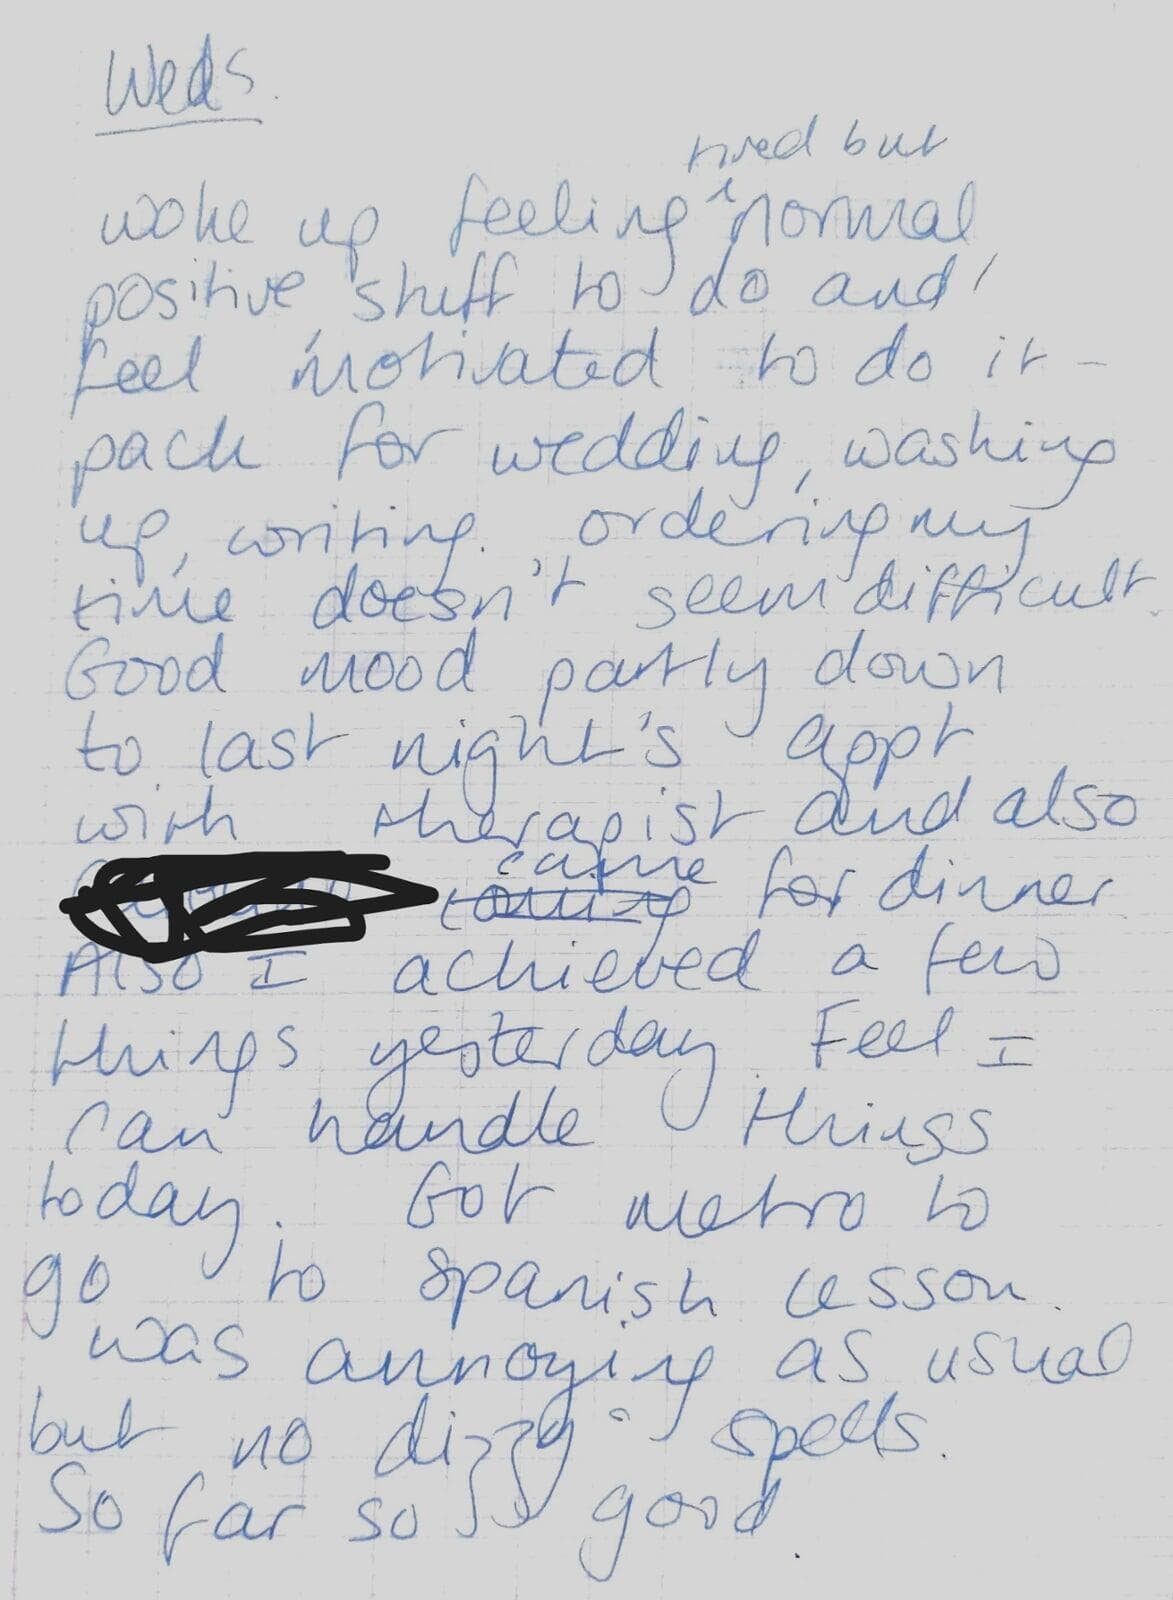 Weds.
tired but
woke up feeling ^ normal,
positive, stuff to do and
feel motivated to do it -
pack for wedding, washing
up, writing. ordering my
time doesn't seem difficult.
Good mood partly down
to last night's appt
with therapist and also
came
coming for dinner
Also I achieved a few
things yesterday. Feel I
can handle things
today. Got metro to
go to Spanish lesson.
was annoying as usual
but no dizzy spells.
So far so good.